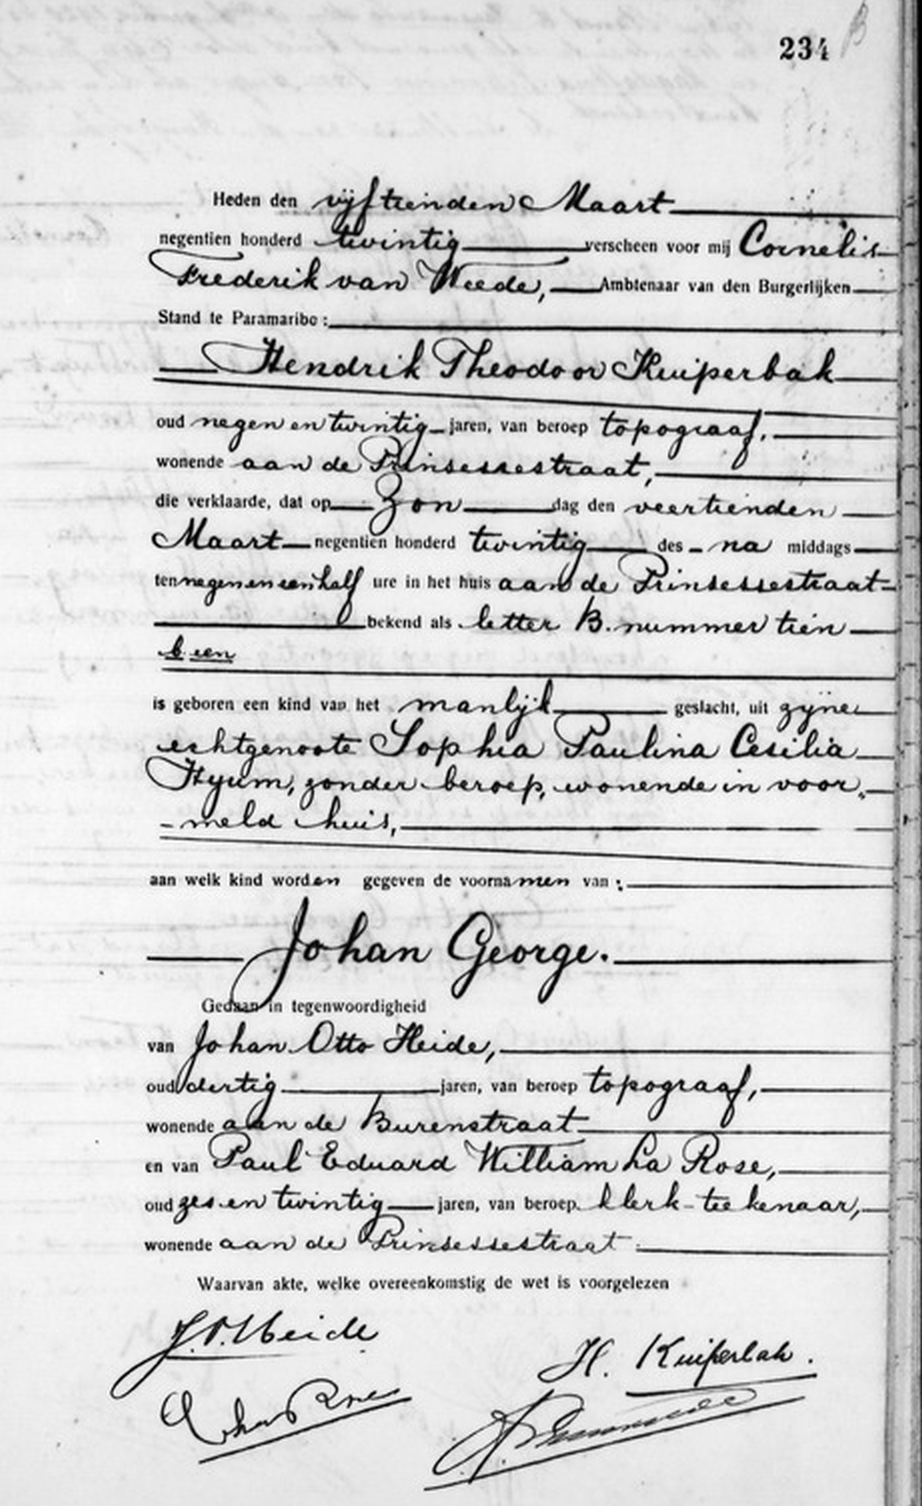 234
B
Heden den vijftienden Maart
negentien honderd twintig verscheen voor mij Cornelis
Frederik van Weede, Ambtenaar van den Burgerlijken
Stand te Paramaribo:
Hendrik Theodoor Kuiperbak
oud negen en twintig jaren, van beroep topograaf,
wonende aan de Prinsessestraat,
die verklaarde, dat op Zon dag den veertienden
Maart negentien honderd twintig des na middags
ten negen en een half ure in het huis aan de Prinsessestraat
bekend als letter B. nummer tien
b een
is geboren een kind van het manlijk geslacht, uit zijne
echtgenoote Sophia Paulina Cesilia
Hyum, zonder beroep, wonende in voor
meld huis,
aan welk kind worden gegeven de voornamen van:
Johan George.
Gedaan in tegenwoordigheid
van Johan Otto Heide,
oud dertig jaren, van beroep topograaf,
wonende aan de Burenstraat
en van Paul Eduard William La Rose,
oud zes en twintig jaren, van beroep klerk-teekenaar,
wonende aan de Prinsessestraat.
Waarvan akte, welke overeenkomstig de wet is voorgelezen
J.O. Heide
H. Kuiperbak.